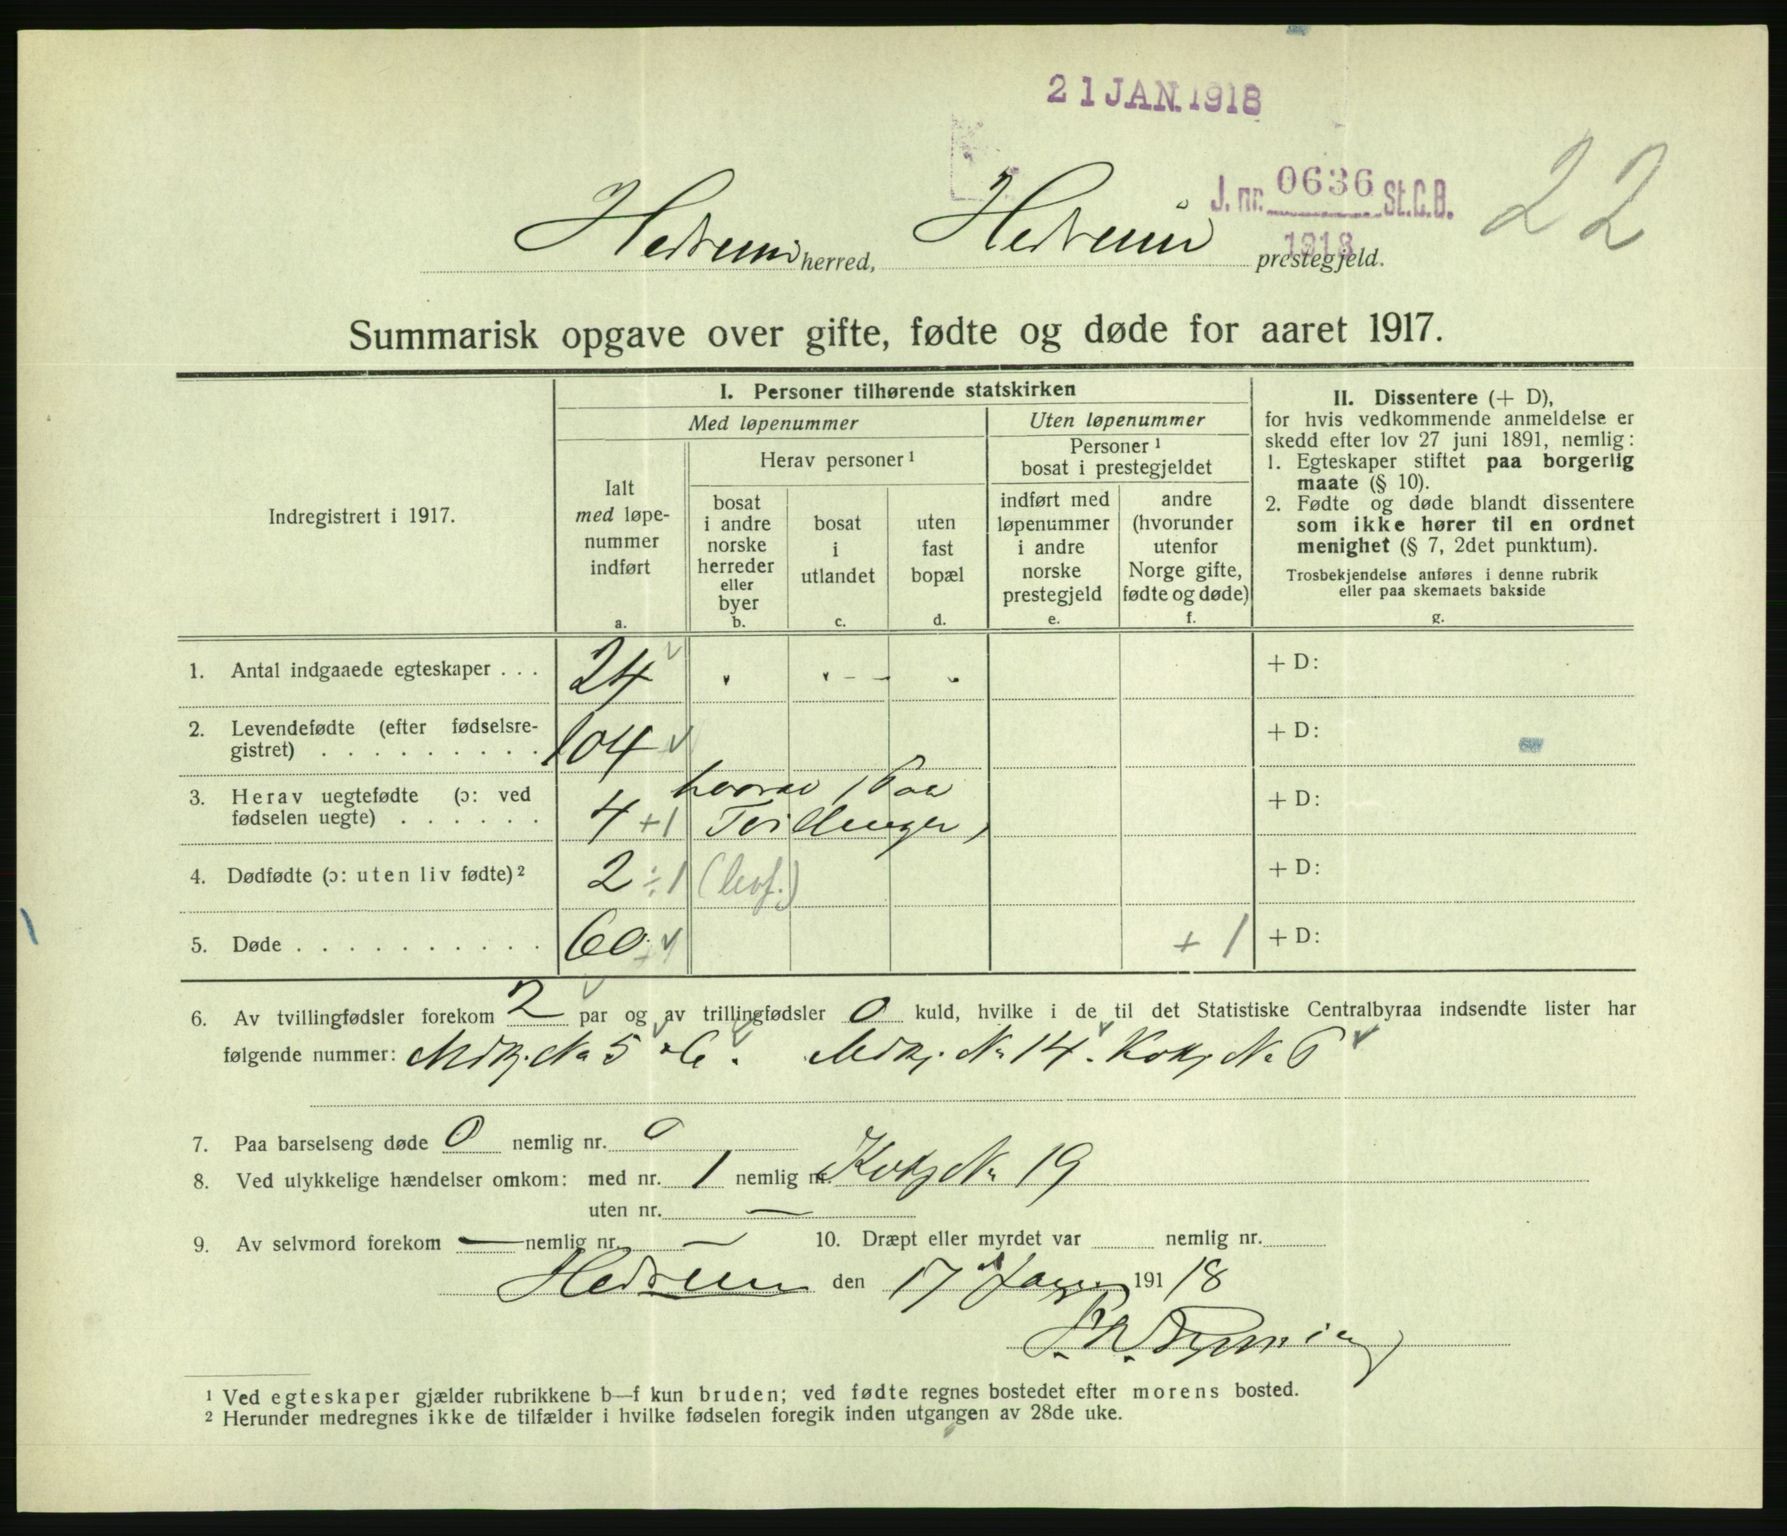 21 JAN. 1918
J. nr. 0636 St.C.B.
1918
22
Hedrum herred, Hedrum prestegjeld.
Summarisk opgave over gifte, fødte og døde for aaret 1917.
Indregistrert i 1917.
I. Personer tilhørende statskirken
Med løpenummer
Uten løpenummer
Ialt
med løpe-
nummer
indført
a.
Herav personer ¹
bosat
i andre
norske
herreder
eller
byer
b.
bosat
i
utlandet
c.
uten
fast
bopæl
d.
Personer ¹
bosat i prestegjeldet
indført med
løpenummer
i andre
norske
prestegjeld
e.
andre
(hvorunder
utenfor
Norge gifte,
fødte og døde)
f.
II. Dissentere (+ D),
for hvis vedkommende anmeldelse er
skedd efter lov 27 juni 1891, nemlig:
1. Egteskaper stiftet paa borgerlig
maate (§ 10).
2. Fødte og døde blandt dissentere
som ikke hører til en ordnet
menighet (§ 7, 2det punktum).
Trosbekjendelse anføres i denne rubrik
eller paa skemaets bakside
g.
1. Antal indgaaede egteskaper . . . 24 + D:
2. Levendefødte (efter fødselsre-
gistret) . . . . . . . . . 104 + D:
3. Herav uegtefødte (ɔ: ved
fødselen uegte) . . . . . . 4 +1 hvorav 1 Par Tvillinger) + D:
4. Dødfødte (ɔ: uten liv fødte) ² 2 ÷1 (levf.) + D:
5. Døde . . . . . . . . . . 60 + 1 + D:
6. Av tvillingfødsler forekom 2 par og av trillingfødsler 0 kuld, hvilke i de til det Statistiske Centralbyraa indsendte lister har
følgende nummer: Mdkj. No 5 & 6. Mdkj. No 14. Kvkj No 6
7. Paa barselseng døde 0 nemlig nr. 0
8. Ved ulykkelige hændelser omkom: med nr. 1 nemlig nr. Kvkj No 19
uten nr. —
9. Av selvmord forekom — nemlig nr. — 10. Dræpt eller myrdet var nemlig nr.
Hedrum den 17 Januar 1918
¹ Ved egteskaper gjælder rubrikkene b—f kun bruden; ved fødte regnes bostedet efter morens bosted.
² Herunder medregnes ikke de tilfælder i hvilke fødselen foregik inden utgangen av 28de uke.